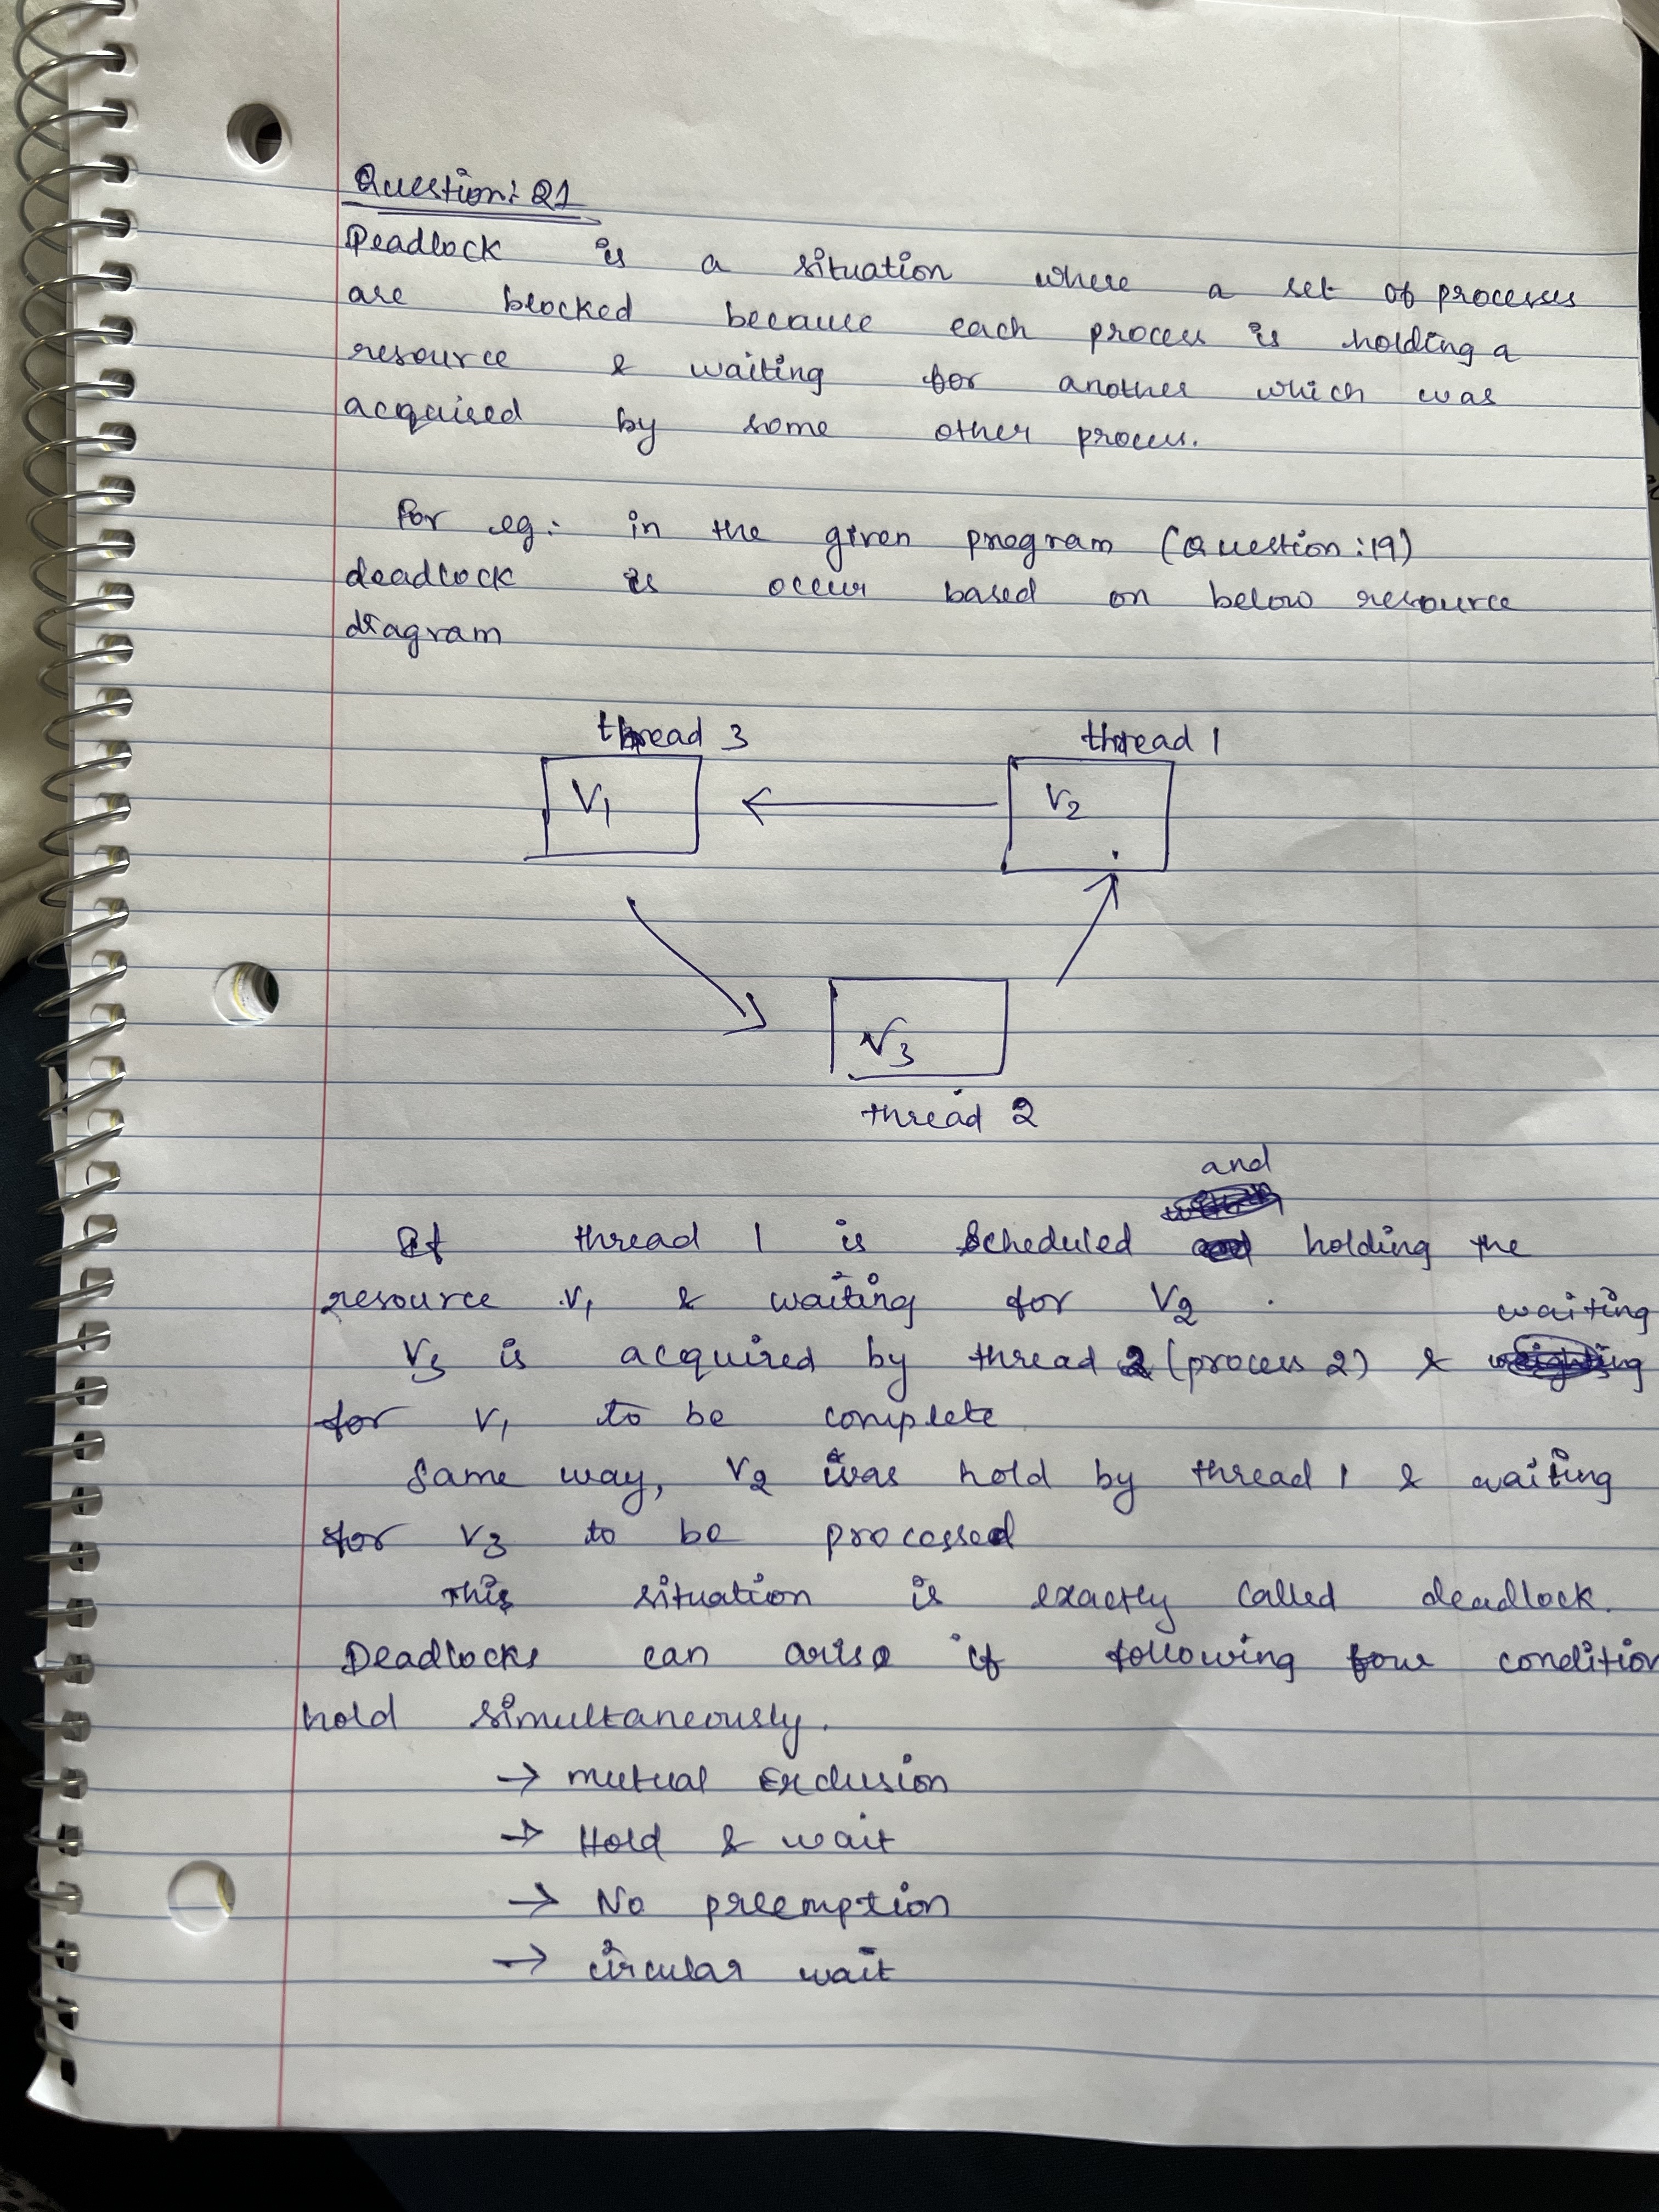 Question: 21
Deadlock is a situation where a set of processes
are blocked because each process is holding a
resource & waiting for another which was
acquired by some other process.
For eg: in the given program (Question:19)
deadlock is occur based on below resource
diagram
thread 3 thread 1
V1 V2
V3
thread 2
and
If thread 1 is scheduled holding the
resource V1 & waiting for V2.
waiting
V3 is acquired by thread 2 (process 2) &
for V1 to be complete
Same way, V2 was hold by thread 1 & waiting
for V3 to be processed
This situation is exactly called deadlock.
Deadlocks can arise if following four condition
hold simultaneously.
→ mutual Exclusion
→ Hold & wait
→ No preemption
→ circular wait